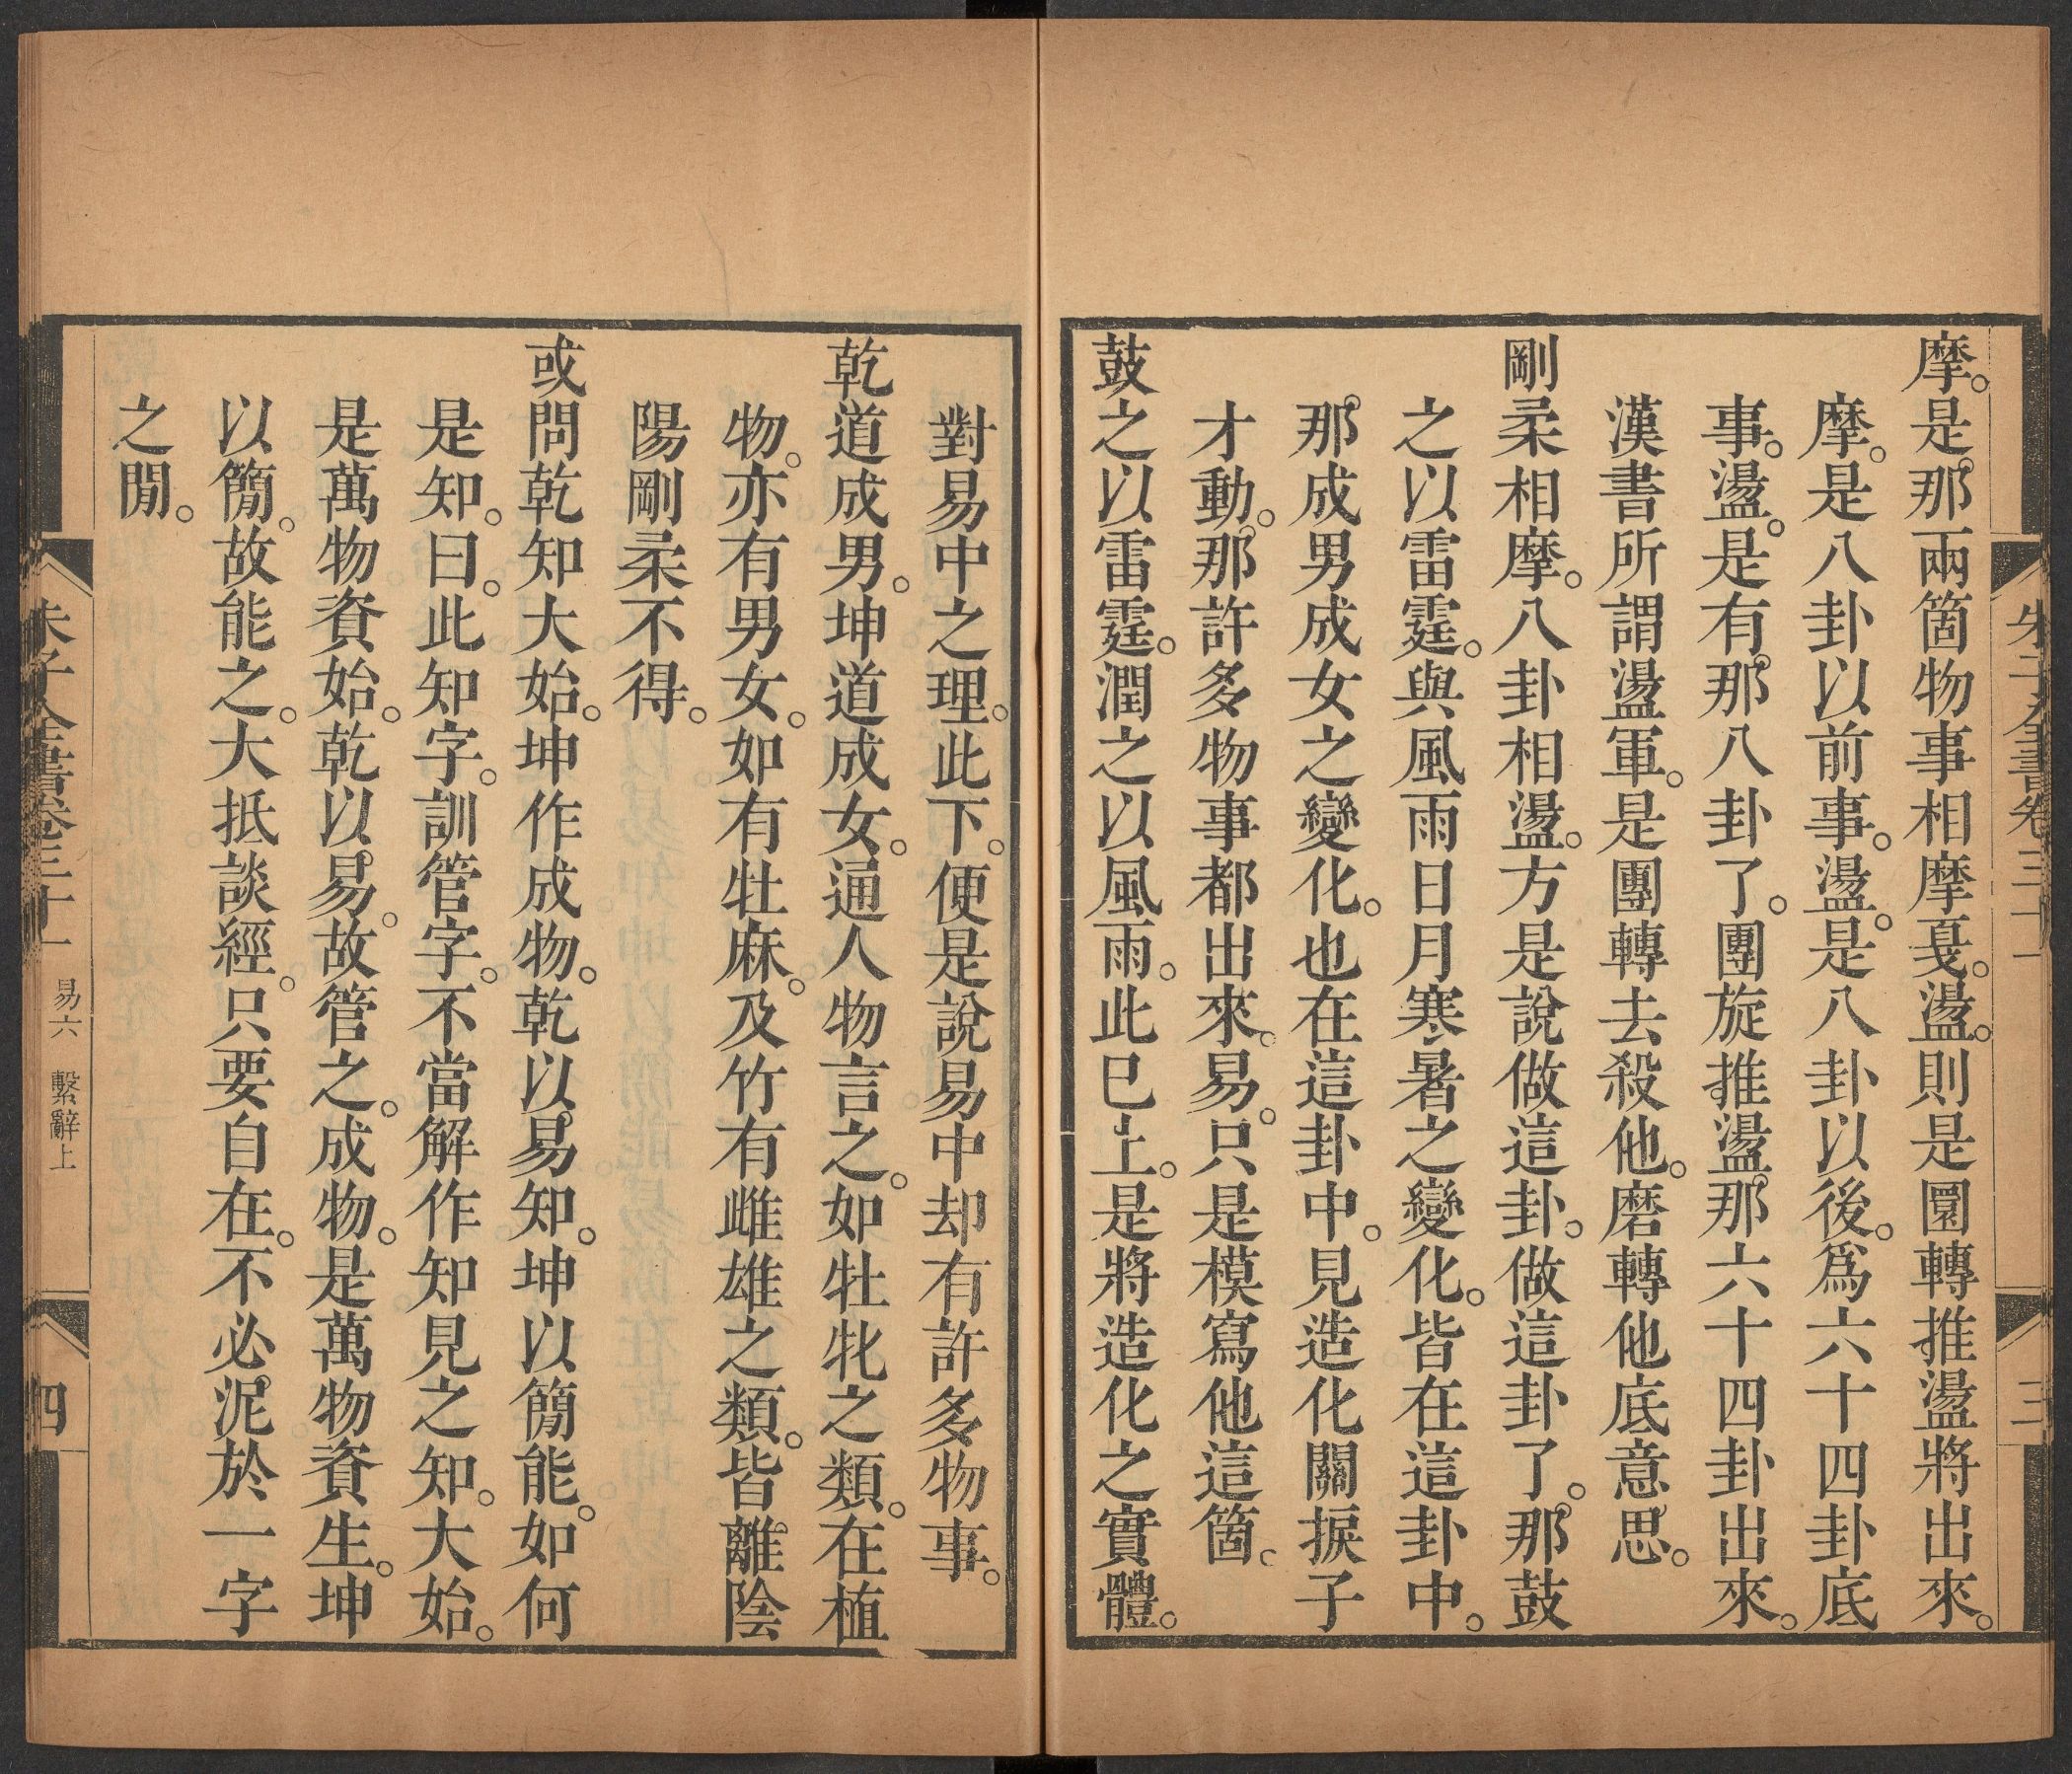 朱子全書卷三十一 三
摩。是那兩箇物事相摩戛。盪。則是圜轉推盪將出來。
摩。是八卦以前事。盪。是八卦以後。爲六十四卦底
事。盪。是有那八卦了。團旋推盪。那六十四卦出來。
漢書所謂盪軍。是團轉去殺他。磨轉他底意思。
剛柔相摩。八卦相盪。方是說做這卦。做這卦了。那鼓
之以雷霆。與風雨日月寒暑之變化。皆在這卦中。
那成男成女之變化。也在這卦中。見造化關捩子
才動。那許多物事都出來。易。只是模寫他這箇。
鼓之以雷霆。潤之以風雨。此已上。是將造化之實體。
對易中之理。此下。便是說易中却有許多物事。
乾道成男。坤道成女。通人物言之。如牡牝之類。在植
物。亦有男女。如有牡麻。及竹有雌雄之類。皆離陰
陽剛柔不得。
或問乾知大始。坤作成物。乾以易知。坤以簡能。如何
是知。曰。此知字。訓管字。不當解作知見之知。大始。
是萬物資始。乾以易。故管之。成物。是萬物資生。坤
以簡。故能之。大抵談經。只要自在。不必泥於一字
之閒。
朱子全書卷三十一 易六 繫辭上 四